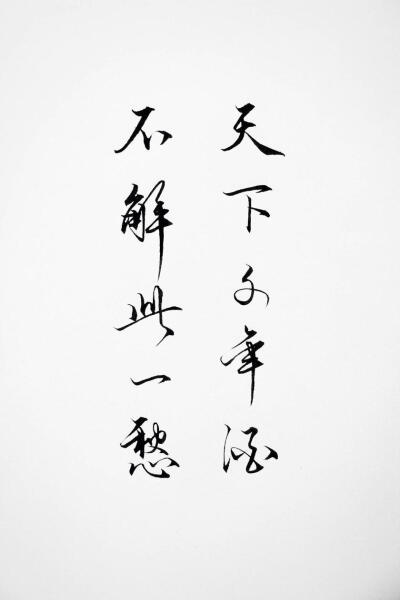 天下多年酒
不解此一愁